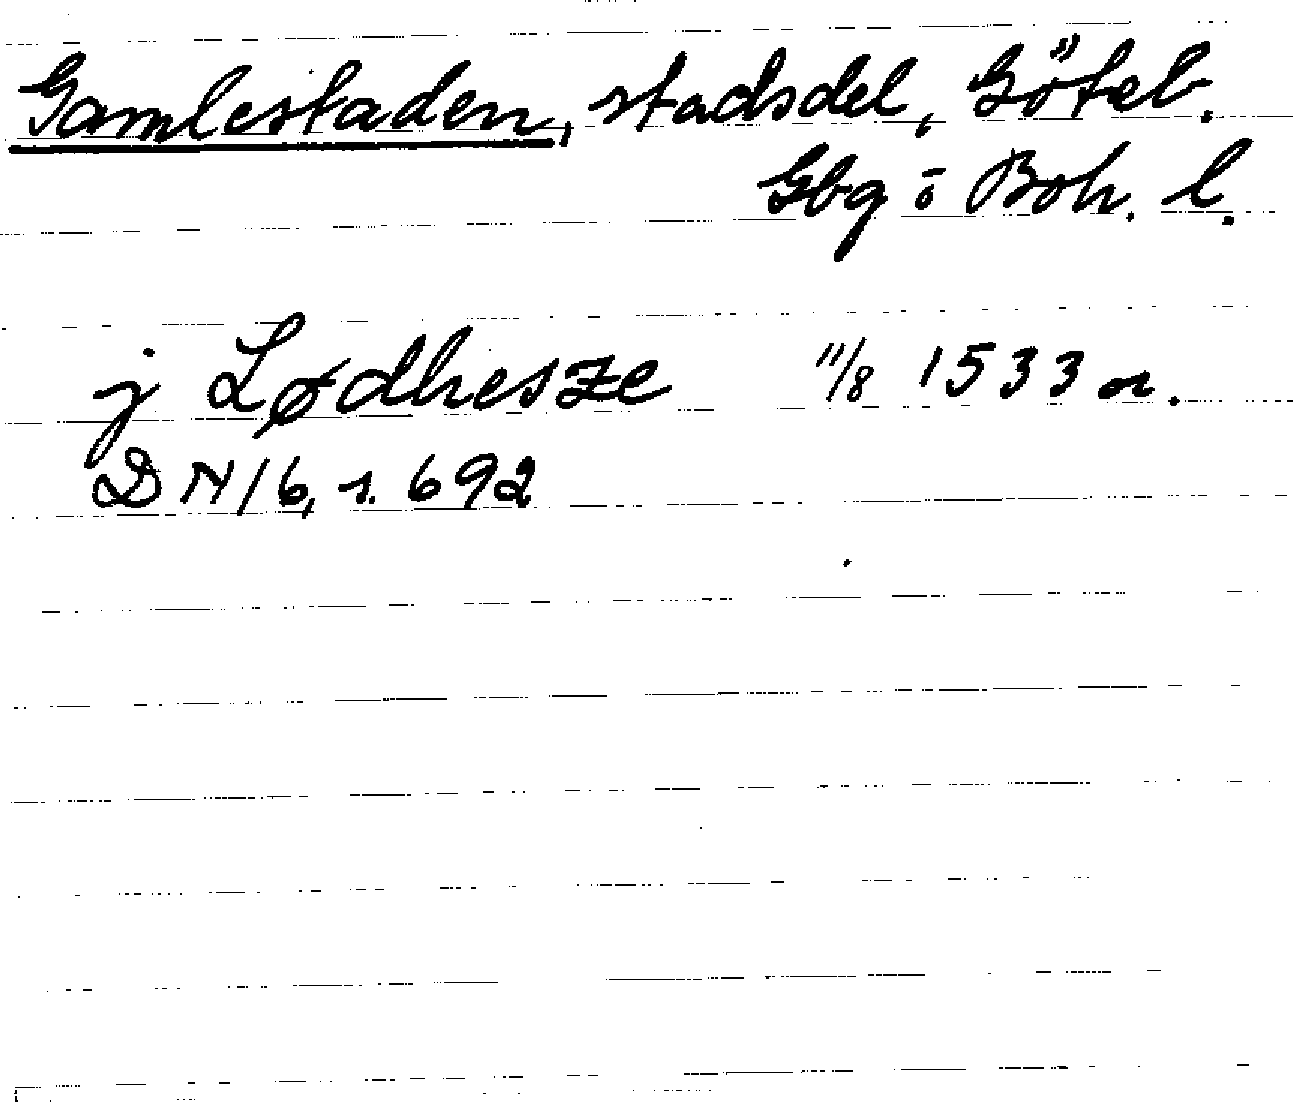 Gamlestaden, stadsdel, Göteb.
Gbg o Boh. l.
j Lødhesze 11/8 1533 or.
DN 16, s. 692